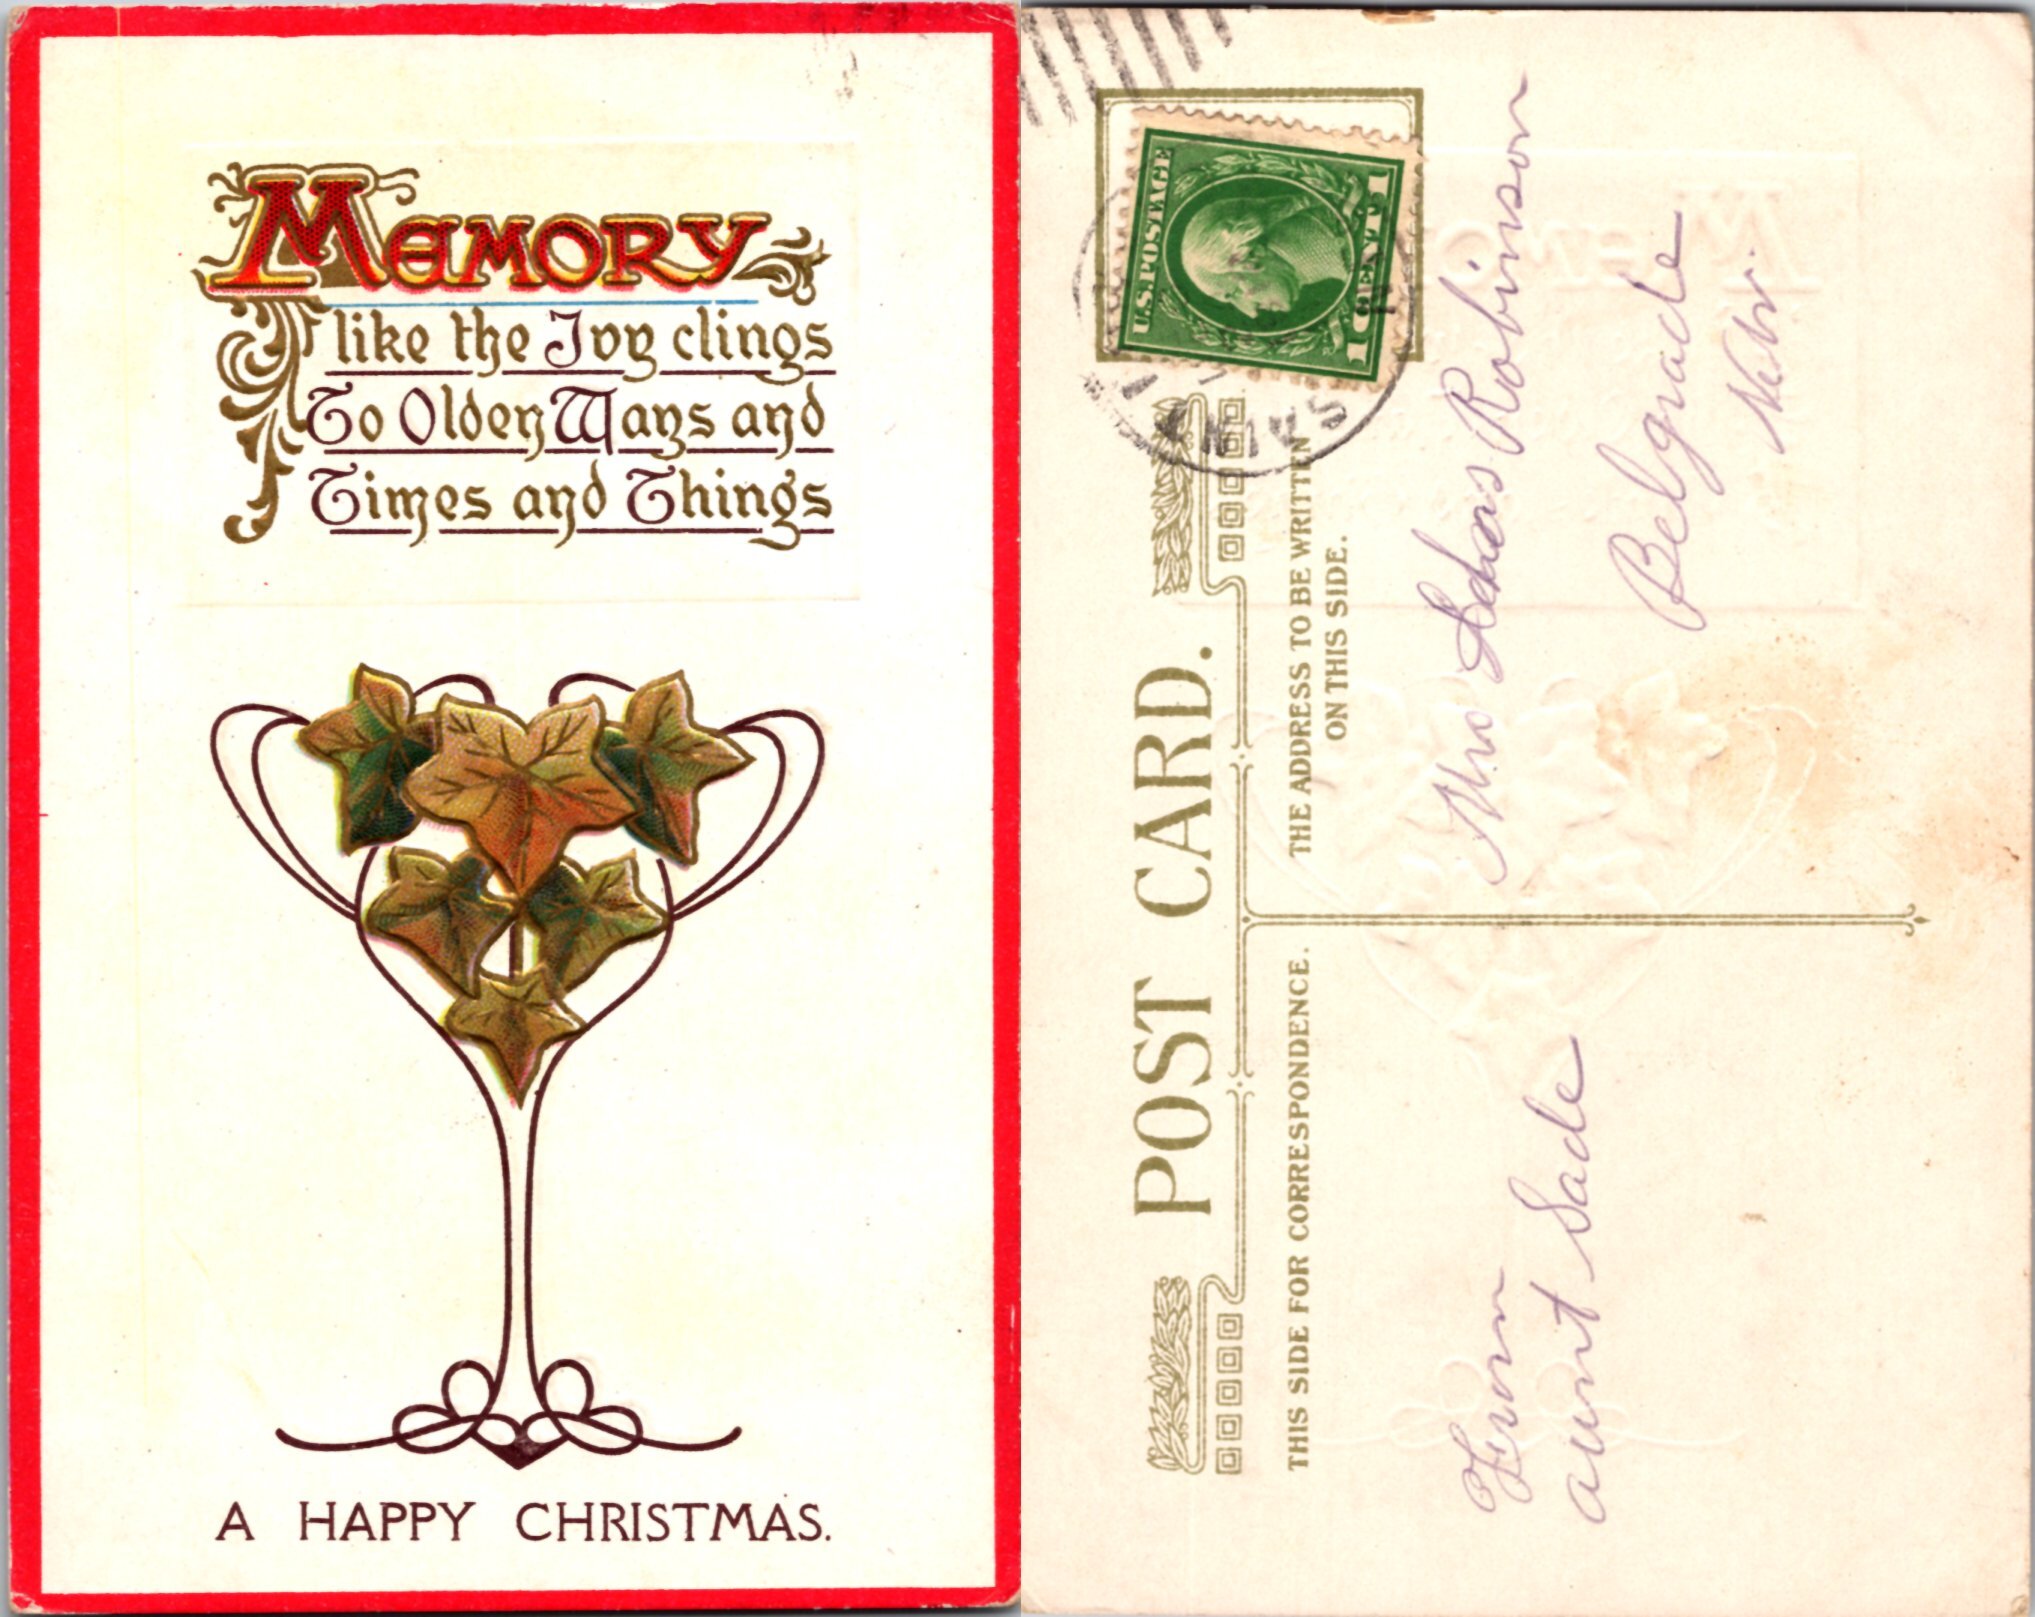 MEMORY
like the Ivy clings
To Olden Ways and
Times and Things
A HAPPY CHRISTMAS.
POST CARD.
THIS SIDE FOR CORRESPONDENCE.
THE ADDRESS TO BE WRITTEN
ON THIS SIDE.
U.S. POSTAGE
1 CENT 1
SAIN
From
aunt Sade
Mrs Robinson
Belgrade
Nebr.